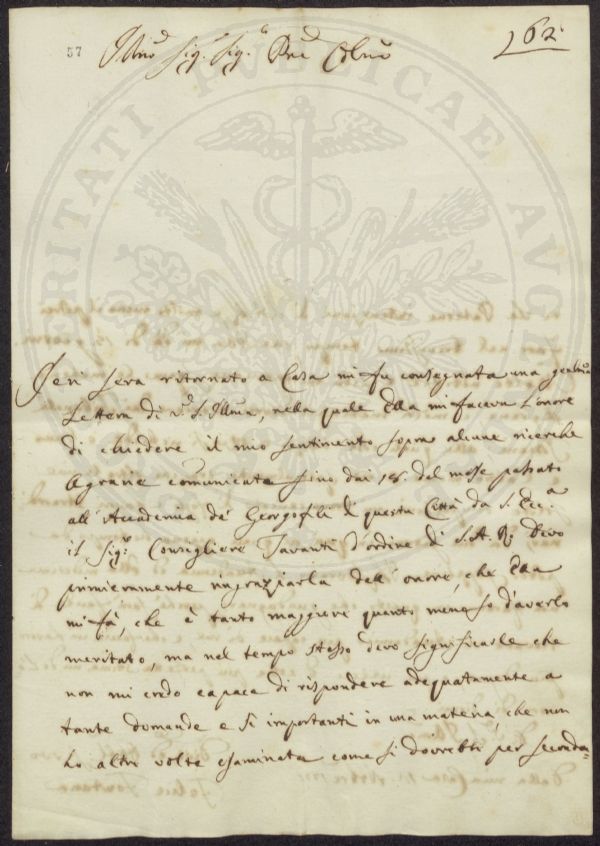 57
162
Illmo Sig.r Sig.r Pne Colmo
PUBLICAE VERITATI AUGE
Jeri sera ritornato a Casa mi fu consegnata una gentilma
Lettera di V.S. Illma, nella quale Ella mi faceva l'onore
di chiedere il mio sentimento sopra alcune ricerche
Agrarie comunicate fino dai 18. del mese passato
all' Accademia de' Georgofili di questa Città da S. Ecc.a
il Sig.r Consigliere Tavanti d'ordine di S. A. R. Devo
primieramente ringraziarla dell' onore, che Ella
mi fà, che è tanto maggiore quanto meno so d'averlo
meritato, ma nel tempo stesso devo significarle che
non mi credo capace di rispondere adequatamente a
tante domande e sì importanti in una materia, che non
ho altre volte esaminata come si dovrebbe per seconda-